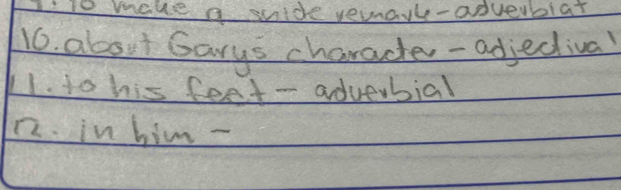 9. to make a snide remark - adverbial
10. about Gary's character - adjectival
11. to his feet - adverbial
12. in him -